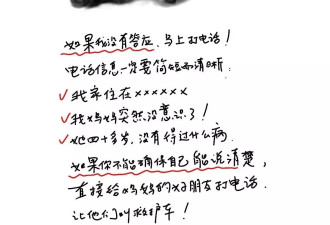 如果我没有答应，马上打电话！
电话信息一定要简短而清晰：
我家住在xxxxxx
我妈妈突然没意识了！
她四十多岁，没有得过什么病。
如果你不能确保自己能说清楚，
直接给妈妈的好朋友打电话
让他们叫救护车！